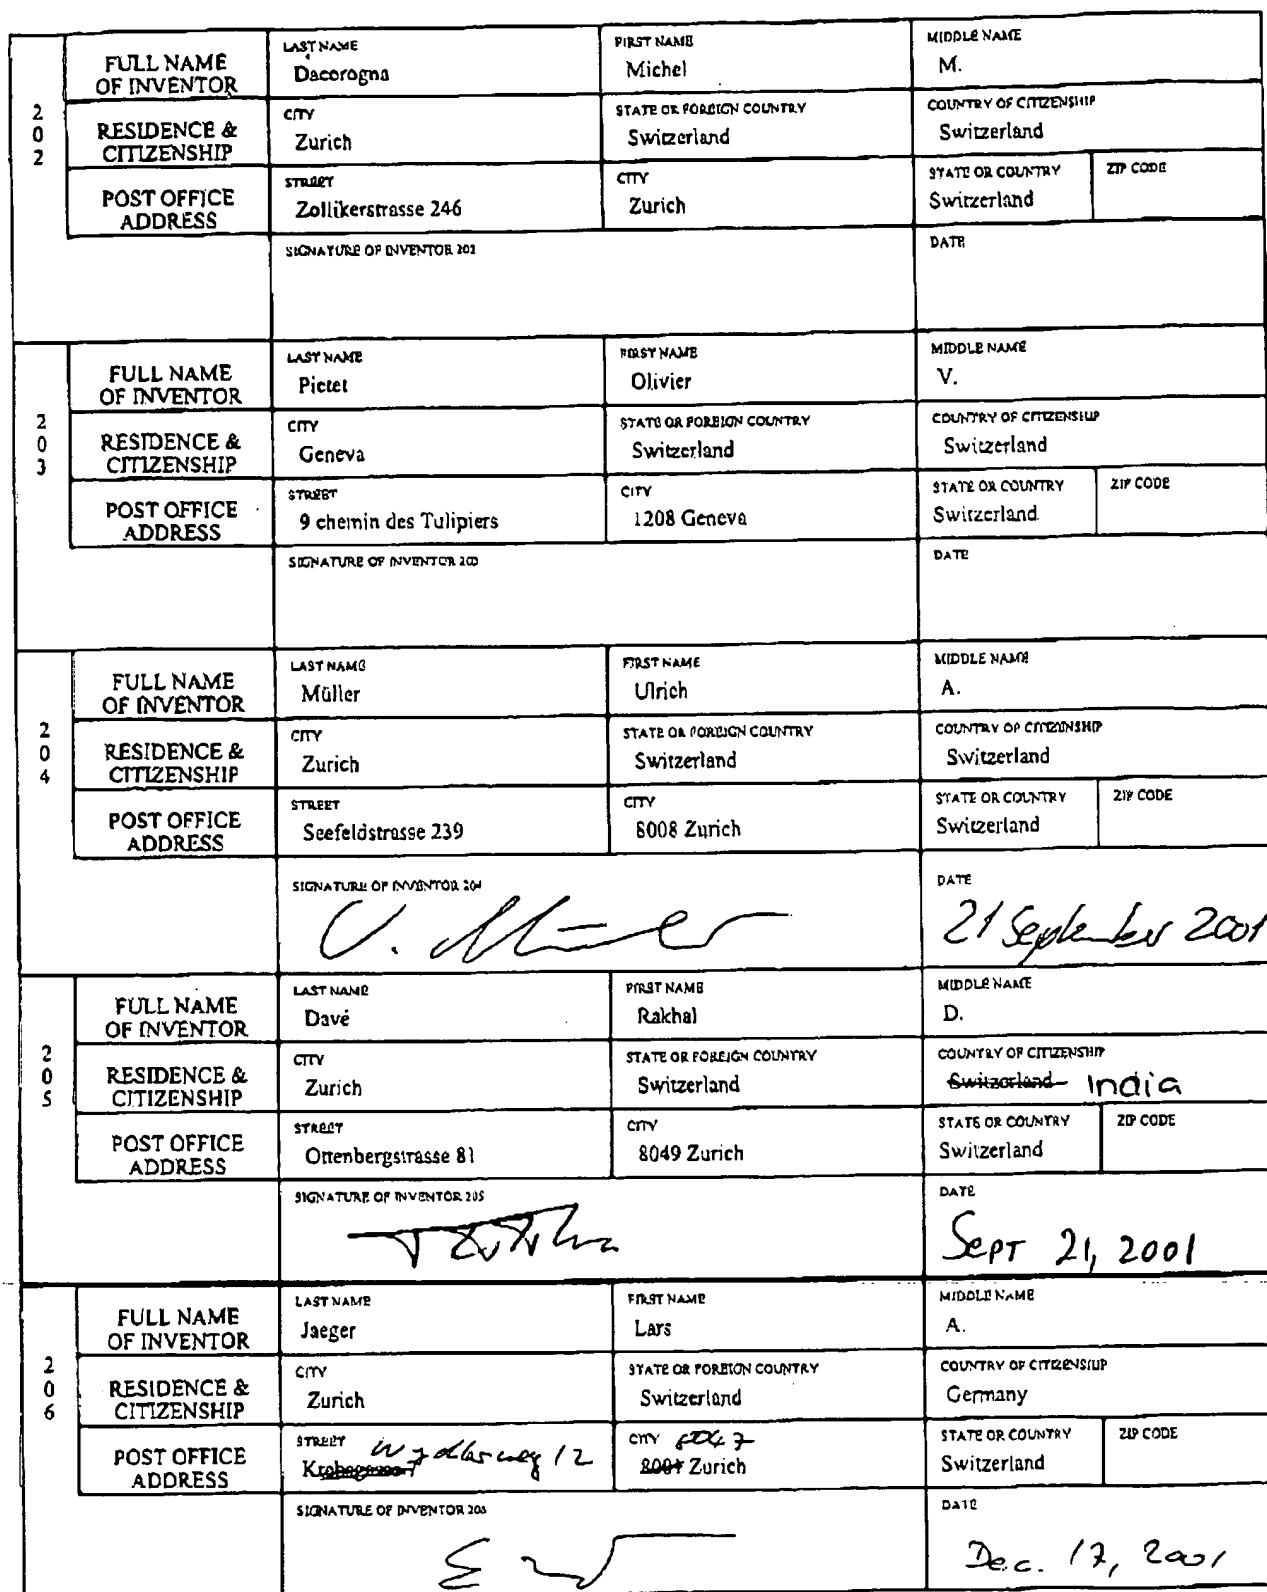 202
FULL NAME OF INVENTOR
LAST NAME
Dacorogna
FIRST NAME
Michel
MIDDLE NAME
M.
RESIDENCE & CITIZENSHIP
CITY
Zurich
STATE OR FOREIGN COUNTRY
Switzerland
COUNTRY OF CITIZENSHIP
Switzerland
POST OFFICE ADDRESS
STREET
Zollikerstrasse 246
CITY
Zurich
STATE OR COUNTRY
Switzerland
ZIP CODE
SIGNATURE OF INVENTOR 202
DATE
203
FULL NAME OF INVENTOR
LAST NAME
Pictet
FIRST NAME
Olivier
MIDDLE NAME
V.
RESIDENCE & CITIZENSHIP
CITY
Geneva
STATE OR FOREIGN COUNTRY
Switzerland
COUNTRY OF CITIZENSHIP
Switzerland
POST OFFICE ADDRESS
STREET
9 chemin des Tulipiers
CITY
1208 Geneva
STATE OR COUNTRY
Switzerland
ZIP CODE
SIGNATURE OF INVENTOR 203
DATE
204
FULL NAME OF INVENTOR
LAST NAME
Müller
FIRST NAME
Ulrich
MIDDLE NAME
A.
RESIDENCE & CITIZENSHIP
CITY
Zurich
STATE OR FOREIGN COUNTRY
Switzerland
COUNTRY OF CITIZENSHIP
Switzerland
POST OFFICE ADDRESS
STREET
Seefeldstrasse 239
CITY
8008 Zurich
STATE OR COUNTRY
Switzerland
ZIP CODE
SIGNATURE OF INVENTOR 204
U. Müller
DATE
21 September 2001
205
FULL NAME OF INVENTOR
LAST NAME
Davé
FIRST NAME
Rakhal
MIDDLE NAME
D.
RESIDENCE & CITIZENSHIP
CITY
Zurich
STATE OR FOREIGN COUNTRY
Switzerland
COUNTRY OF CITIZENSHIP
Switzerland India
POST OFFICE ADDRESS
STREET
Ottenbergstrasse 81
CITY
8049 Zurich
STATE OR COUNTRY
Switzerland
ZIP CODE
SIGNATURE OF INVENTOR 205
DATE
Sept 21, 2001
206
FULL NAME OF INVENTOR
LAST NAME
Jaeger
FIRST NAME
Lars
MIDDLE NAME
A.
RESIDENCE & CITIZENSHIP
CITY
Zurich
STATE OR FOREIGN COUNTRY
Switzerland
COUNTRY OF CITIZENSHIP
Germany
POST OFFICE ADDRESS
STREET
Wydlerweg 12
CITY
8047
Zurich
STATE OR COUNTRY
Switzerland
ZIP CODE
SIGNATURE OF INVENTOR 206
DATE
Dec. 17, 2001